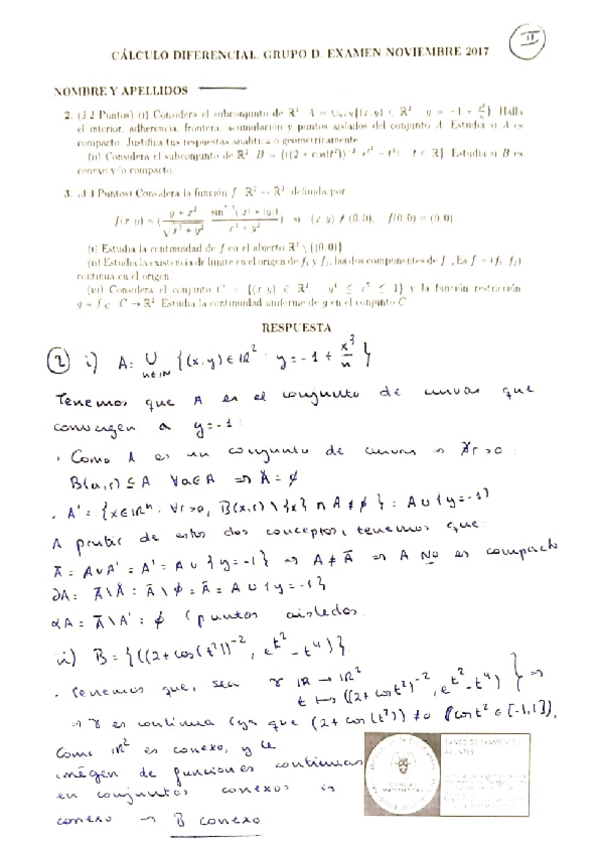 II
CÁLCULO DIFERENCIAL. GRUPO D. EXAMEN NOVIEMBRE 2017
NOMBRE Y APELLIDOS
2. (3.2 Puntos) (i) Considera el subconjunto de ℝ², A = ∪ₙ∈ℕ{(x,y) ∈ ℝ² : y = -1 + x³/n}. Halla
el interior, adherencia, frontera, acumulación y puntos aislados del conjunto A. Estudia si A es
compacto. Justifica tus respuestas analítica o geométricamente.
(ii) Considera el subconjunto de ℝ², B = {((2 + cos(t²))⁻², e^(t²) - t⁴) : t ∈ ℝ}. Estudia si B es
conexo y/o compacto.
3. Puntos) Considera la función f : ℝ² → ℝ² definida por
si (x, y) ≠ (0, 0), f(0, 0) = (0, 0)
(i) Estudia la continuidad de f en el abierto ℝ² \ {(0, 0)}
(ii) Estudia la existencia de límite en el origen de f₁ y f₂, las dos componentes de f. ¿Es f = (f₁, f₂)
continua en el origen?
(iii) Considera el conjunto C = {(x, y) ∈ ℝ² : ≤ 1} y la función restricción
g = f|C : C → ℝ². Estudia la continuidad uniforme de g en el conjunto C
RESPUESTA
② i) A = ∪ n∈ℕ {(x,y) ∈ ℝ² : y = -1 + x³/n}
Tenemos que A es el conjunto de curvas que
convergen a y=-1:
· Como A es un conjunto de curvas ⇒ ∄r>0 :
B(a,r) ⊆ A ∀a∈A ⇒ Å = ∅
· A' = {x∈ℝⁿ : ∀r>0, B(x,r)\{x} ∩ A ≠ ∅} = A ∪ {y=-1}
A partir de estos dos conceptos, tenemos que:
Ā = A∪A' = A' = A ∪ {y=-1} ⇒ A ≠ Ā ⇒ A NO es compacto
∂A = Ā\Å = Ā\∅ = Ā = A ∪ {y=-1}
αA = Ā\A' = ∅ (puntos aislados.
ii) B = {((2+cos(t²))⁻², e^(t²) - t⁴)}.
· Tenemos que, sea γ ℝ → ℝ²
t ↦ ((2+cos t²)⁻², e^(t²) - t⁴) } ⇒
⇒ γ es continua (ya que (2+cos(t²)) ≠ 0 cos t² ∈ [-1,1]).
Como ℝ² es conexo, y la
imágen de funciones continuas
en conjuntos conexos es
conexo → B conexo.
BANCO DE EXÁMENES Y
APUNTES